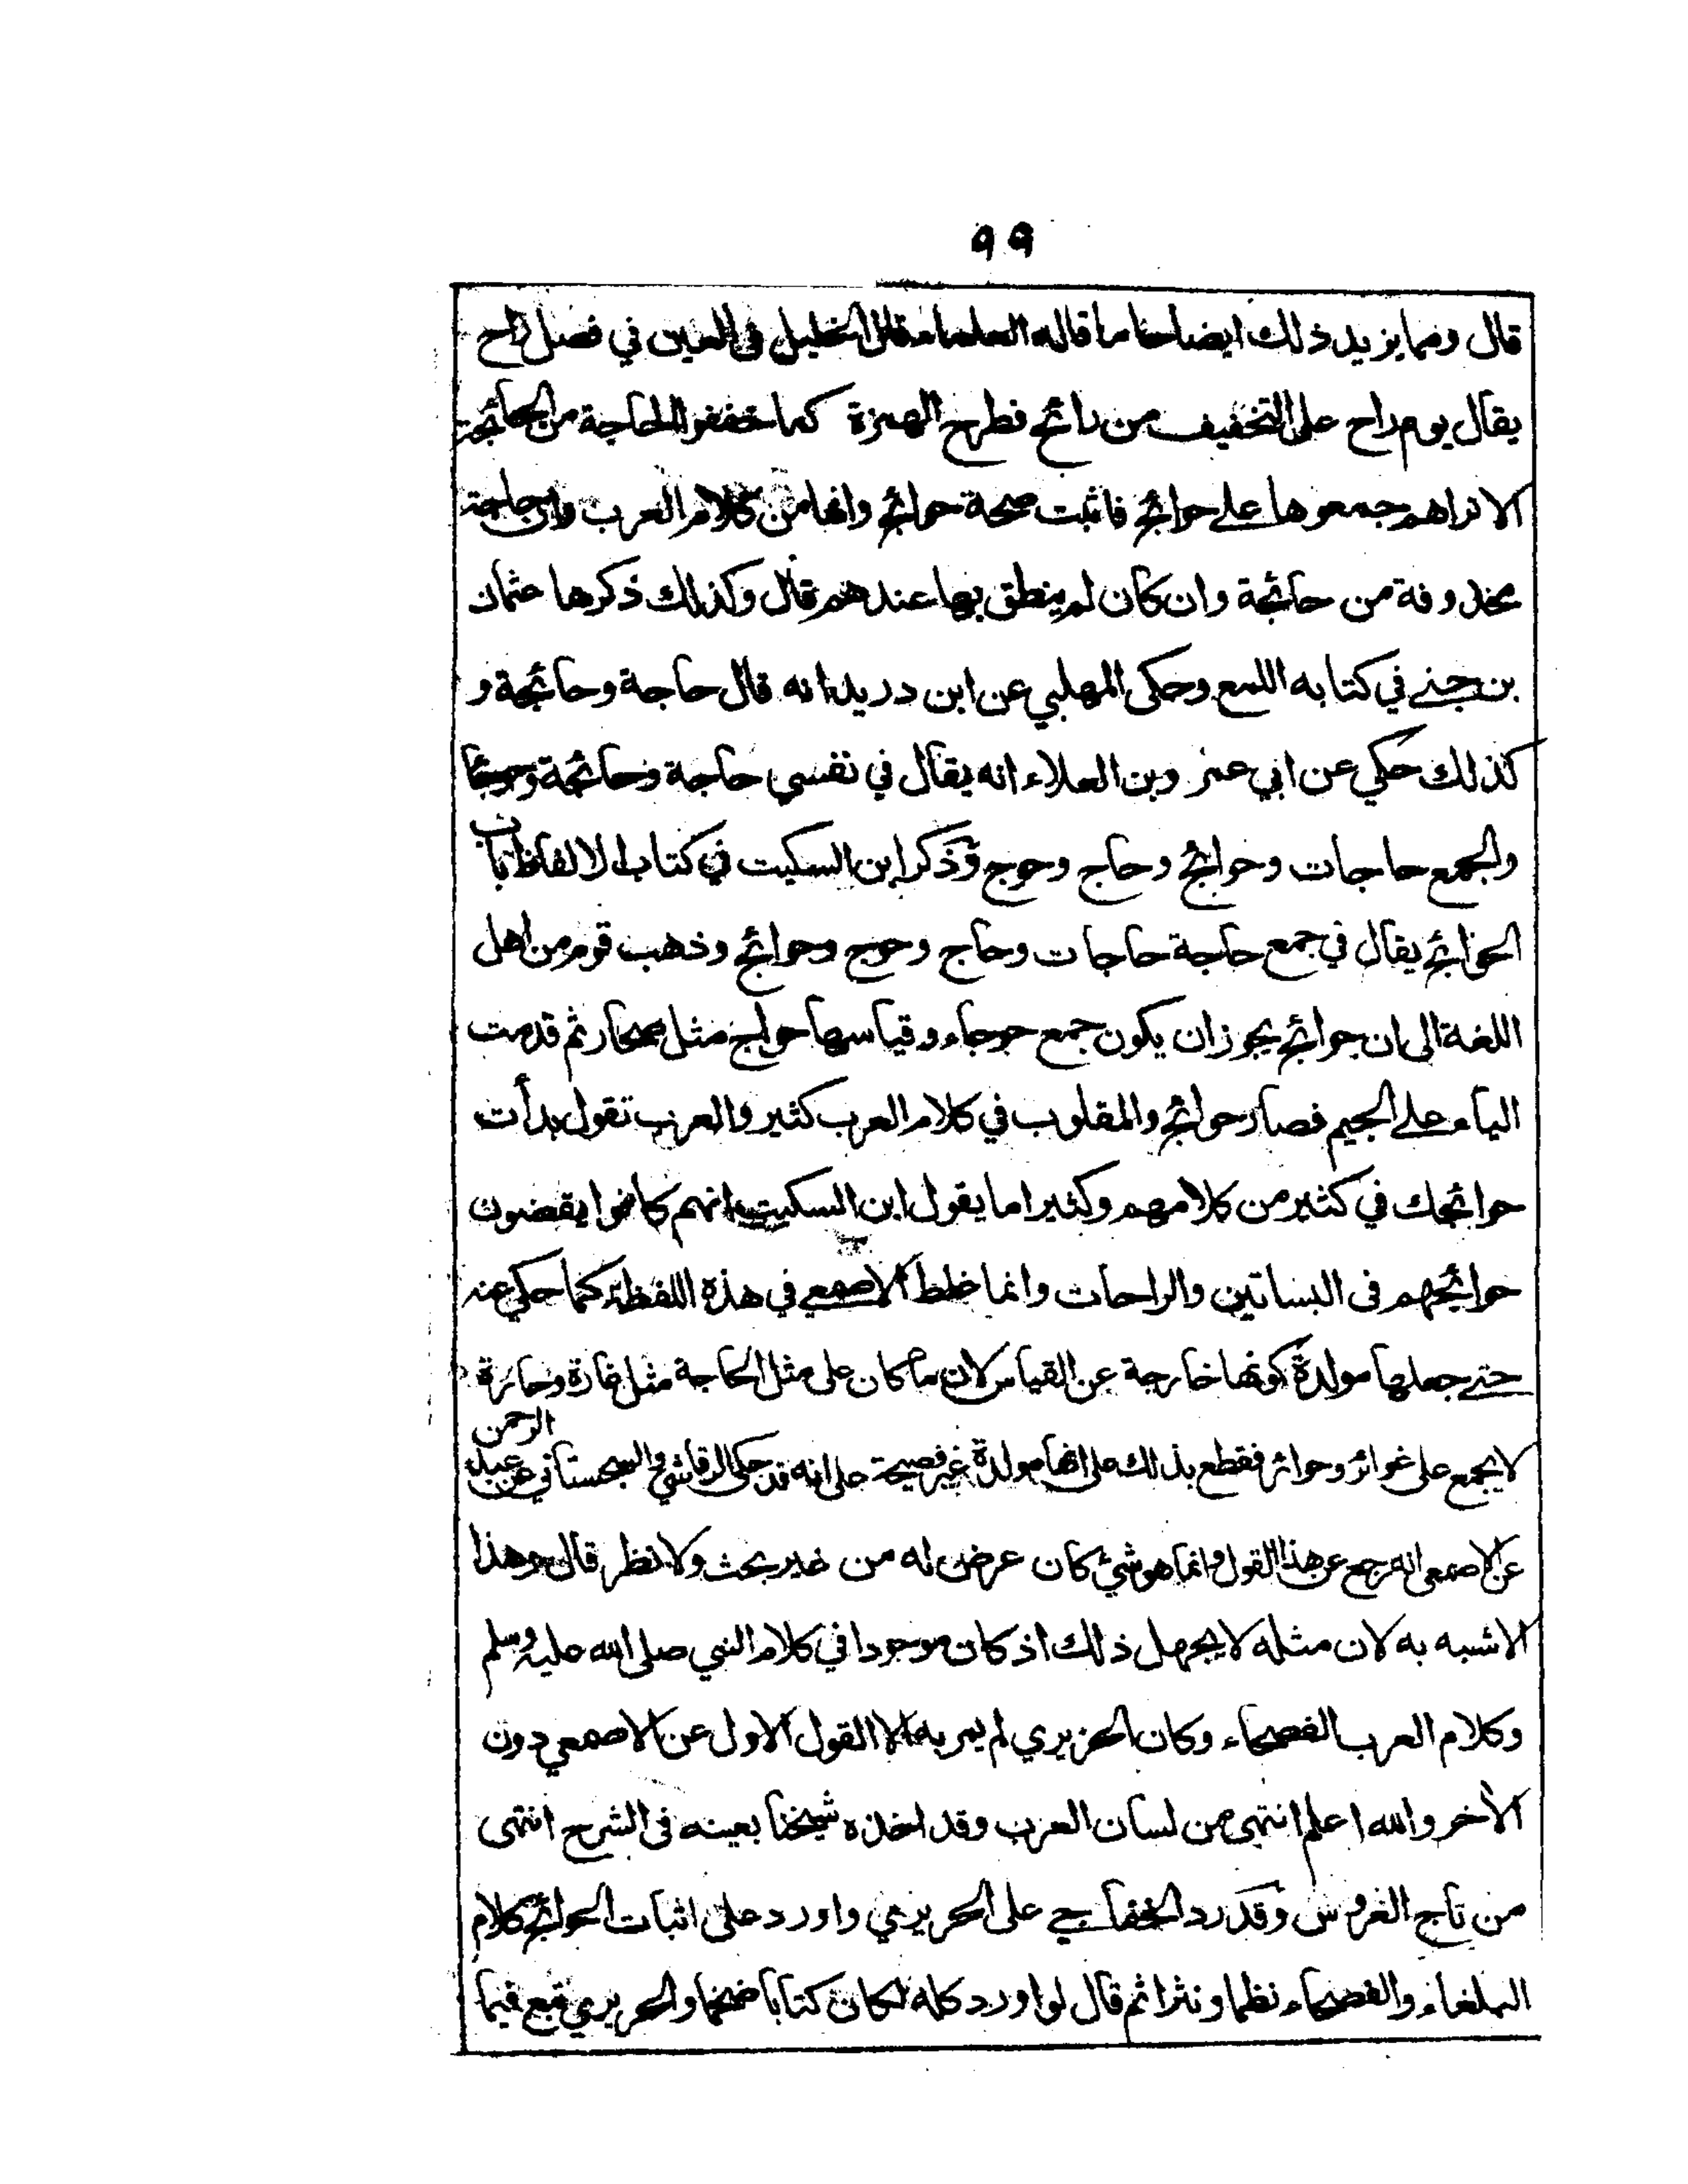 ٩٩
قال ومما يزيد ذلك ايضاحا ما قاله العلماء قال الخليل فى العين في فصل راح
يقال يوم راح على التخفيف من رائح فطرح الهمزة كما خففوا الحاجة من الحائجة
الا تراهم جمعوها على حوائج فاثبت صحة حوائج وانها من كلام العرب وان حاجة
محذوفة من حائجة وان كان لم ينطق بها عندهم قال وكذلك ذكرها عثمان
بن جني في كتابه اللمع وحكى المهلبي عن ابن دريد انه قال حاجة وحائجة و
كذلك حكي عن ابي عمر وبن العلاء انه يقال في نفسي حاجة وحائجة وحوجا
والجمع حاجات وحوائج وحاج وحوج وذكر ابن السكيت في كتاب الالفاظ باب
الحوائج يقال في جمع حاجة حاجات وحاج وحوج وحوائج وذهب قوم من اهل
اللغة الى ان حوائج يجوز ان يكون جمع حوجاء وقياسها حواج مثل صحار ثم قدمت
الياء على الجيم فصار حوائج والمقلوب في كلام العرب كثير والعرب تقول بدأت
حوائجك في كثير من كلامهم وكثيرا ما يقول ابن السكيت انهم كانوا يقضون
حوائجهم فى البساتين والراحات وانما غلط الاصمعي في هذه اللفظة كما حكي عنه
حتى جعلها مولدة كونها خارجة عن القياس لان ما كان على مثل الحاجة مثل غارة وحارة
لا يجمع على غوائر وحوائر فقطع بذلك على انها مولدة غير فصيحة على انه قد حكى الرقاشي والسجستاني عن عبد الرحمن
عن الاصمعى انه رجع عن هذا القول وانما هو شيئ كان عرض له من غير بحث ولا نظر قال وهذا
الاشبه به لان مثله لا يجهل ذلك اذ كان موجودا في كلام النبي صلى الله عليه وسلم
وكلام العرب الفصحاء وكان الحريري لم يمر به الا القول الاول عن الاصمعي دون
الاخر والله اعلم انتهى من لسان العرب وقد اخذه شيخنا بعينه فى الشرح انتهى
من تاج العروس وقد رد الخفاجي على الحريري واورد على اثبات الحوائج كلام
البلغاء والفصحاء نظما ونثرا ثم قال لو اورد كله لكان كتابا ضخما والحريري تبع فيما